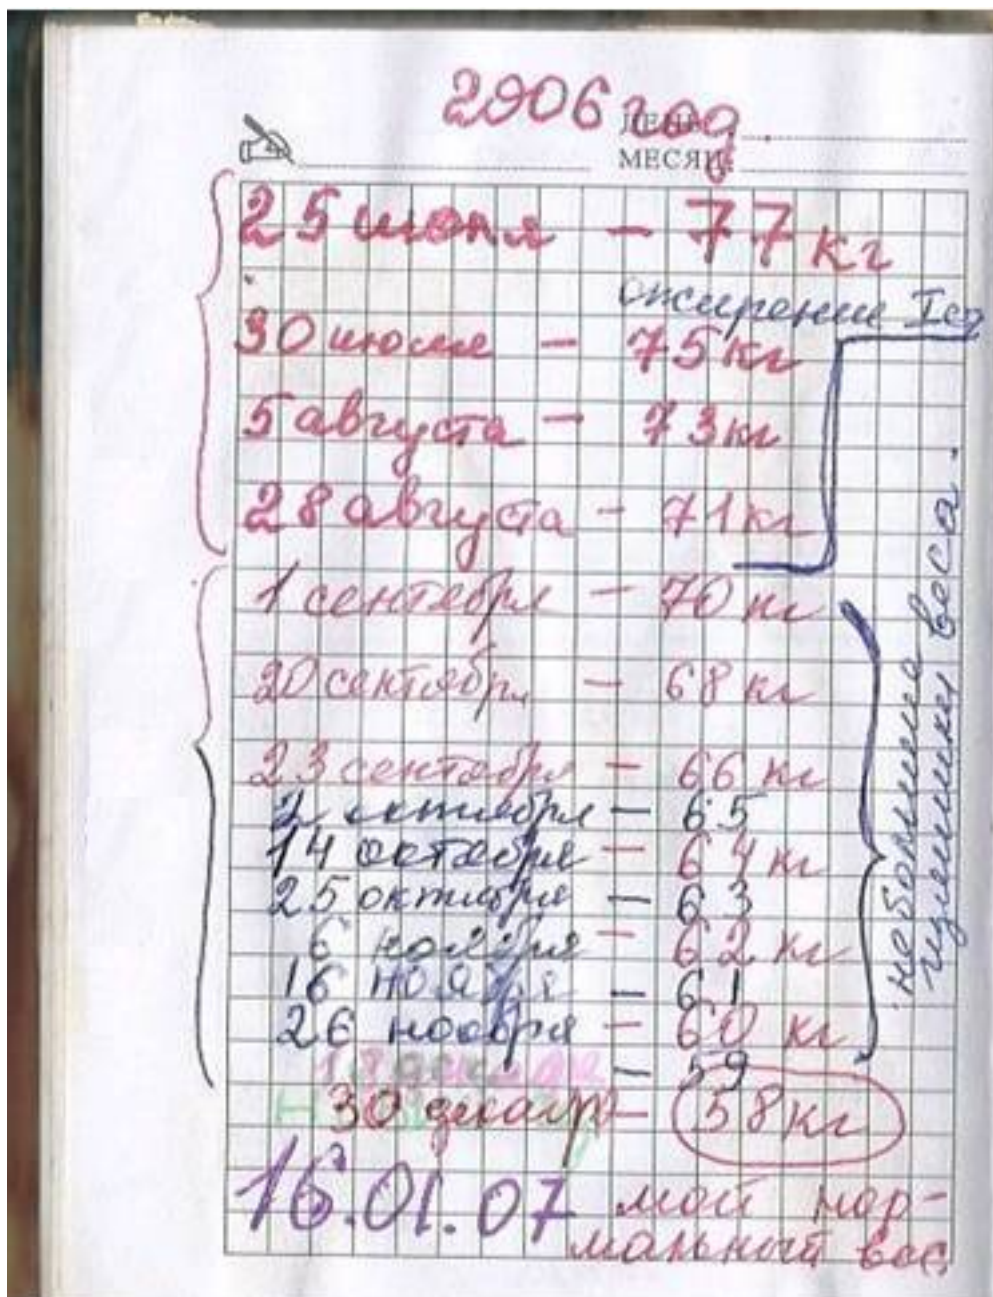 2006 год.
ДЕНЬ
МЕСЯЦ
25 июня - 77 кг
ожирение I ст
30 июля - 75 кг
5 августа - 73 кг
28 августа - 71 кг
1 сентября - 70 кг
20 сентября - 68 кг
23 сентября - 66 кг
2 октября - 65
14 октября - 64 кг
25 октября - 63
6 ноября - 62 кг
16 ноября - 61
26 ноября - 60 кг
- 59
30 декабр - 58 кг
16.01.07 мой нор-
мальный вес
небольшие
излишки веса.